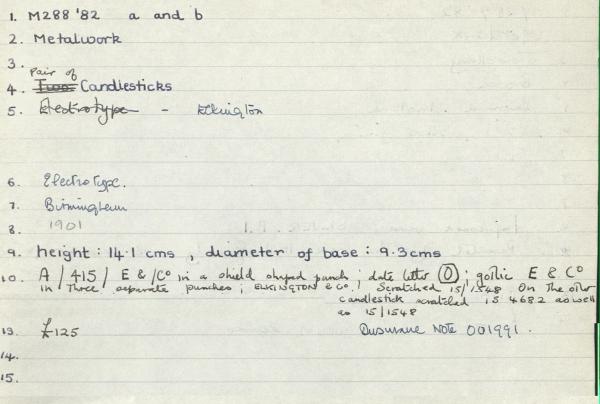 1. M288 '82 a and b
2. Metalwork
3.
Pair of
4. Two Candlesticks
5. Electrotype - Elkington
6. Electrotype.
7. Birmingham
8. 1901
9. height: 14.1 cms, diameter of base: 9.3cms
10. A / 415 / E & Co in a shield shaped punch; date letter O; gothic E & Co
in three separate punches; ELKINGTON & CO. / Scratched 15/1548 On the other
candlestick scratched 15 4682 as well
as 15/1548
13. £125 Insurance Note 001991.
14.
15.